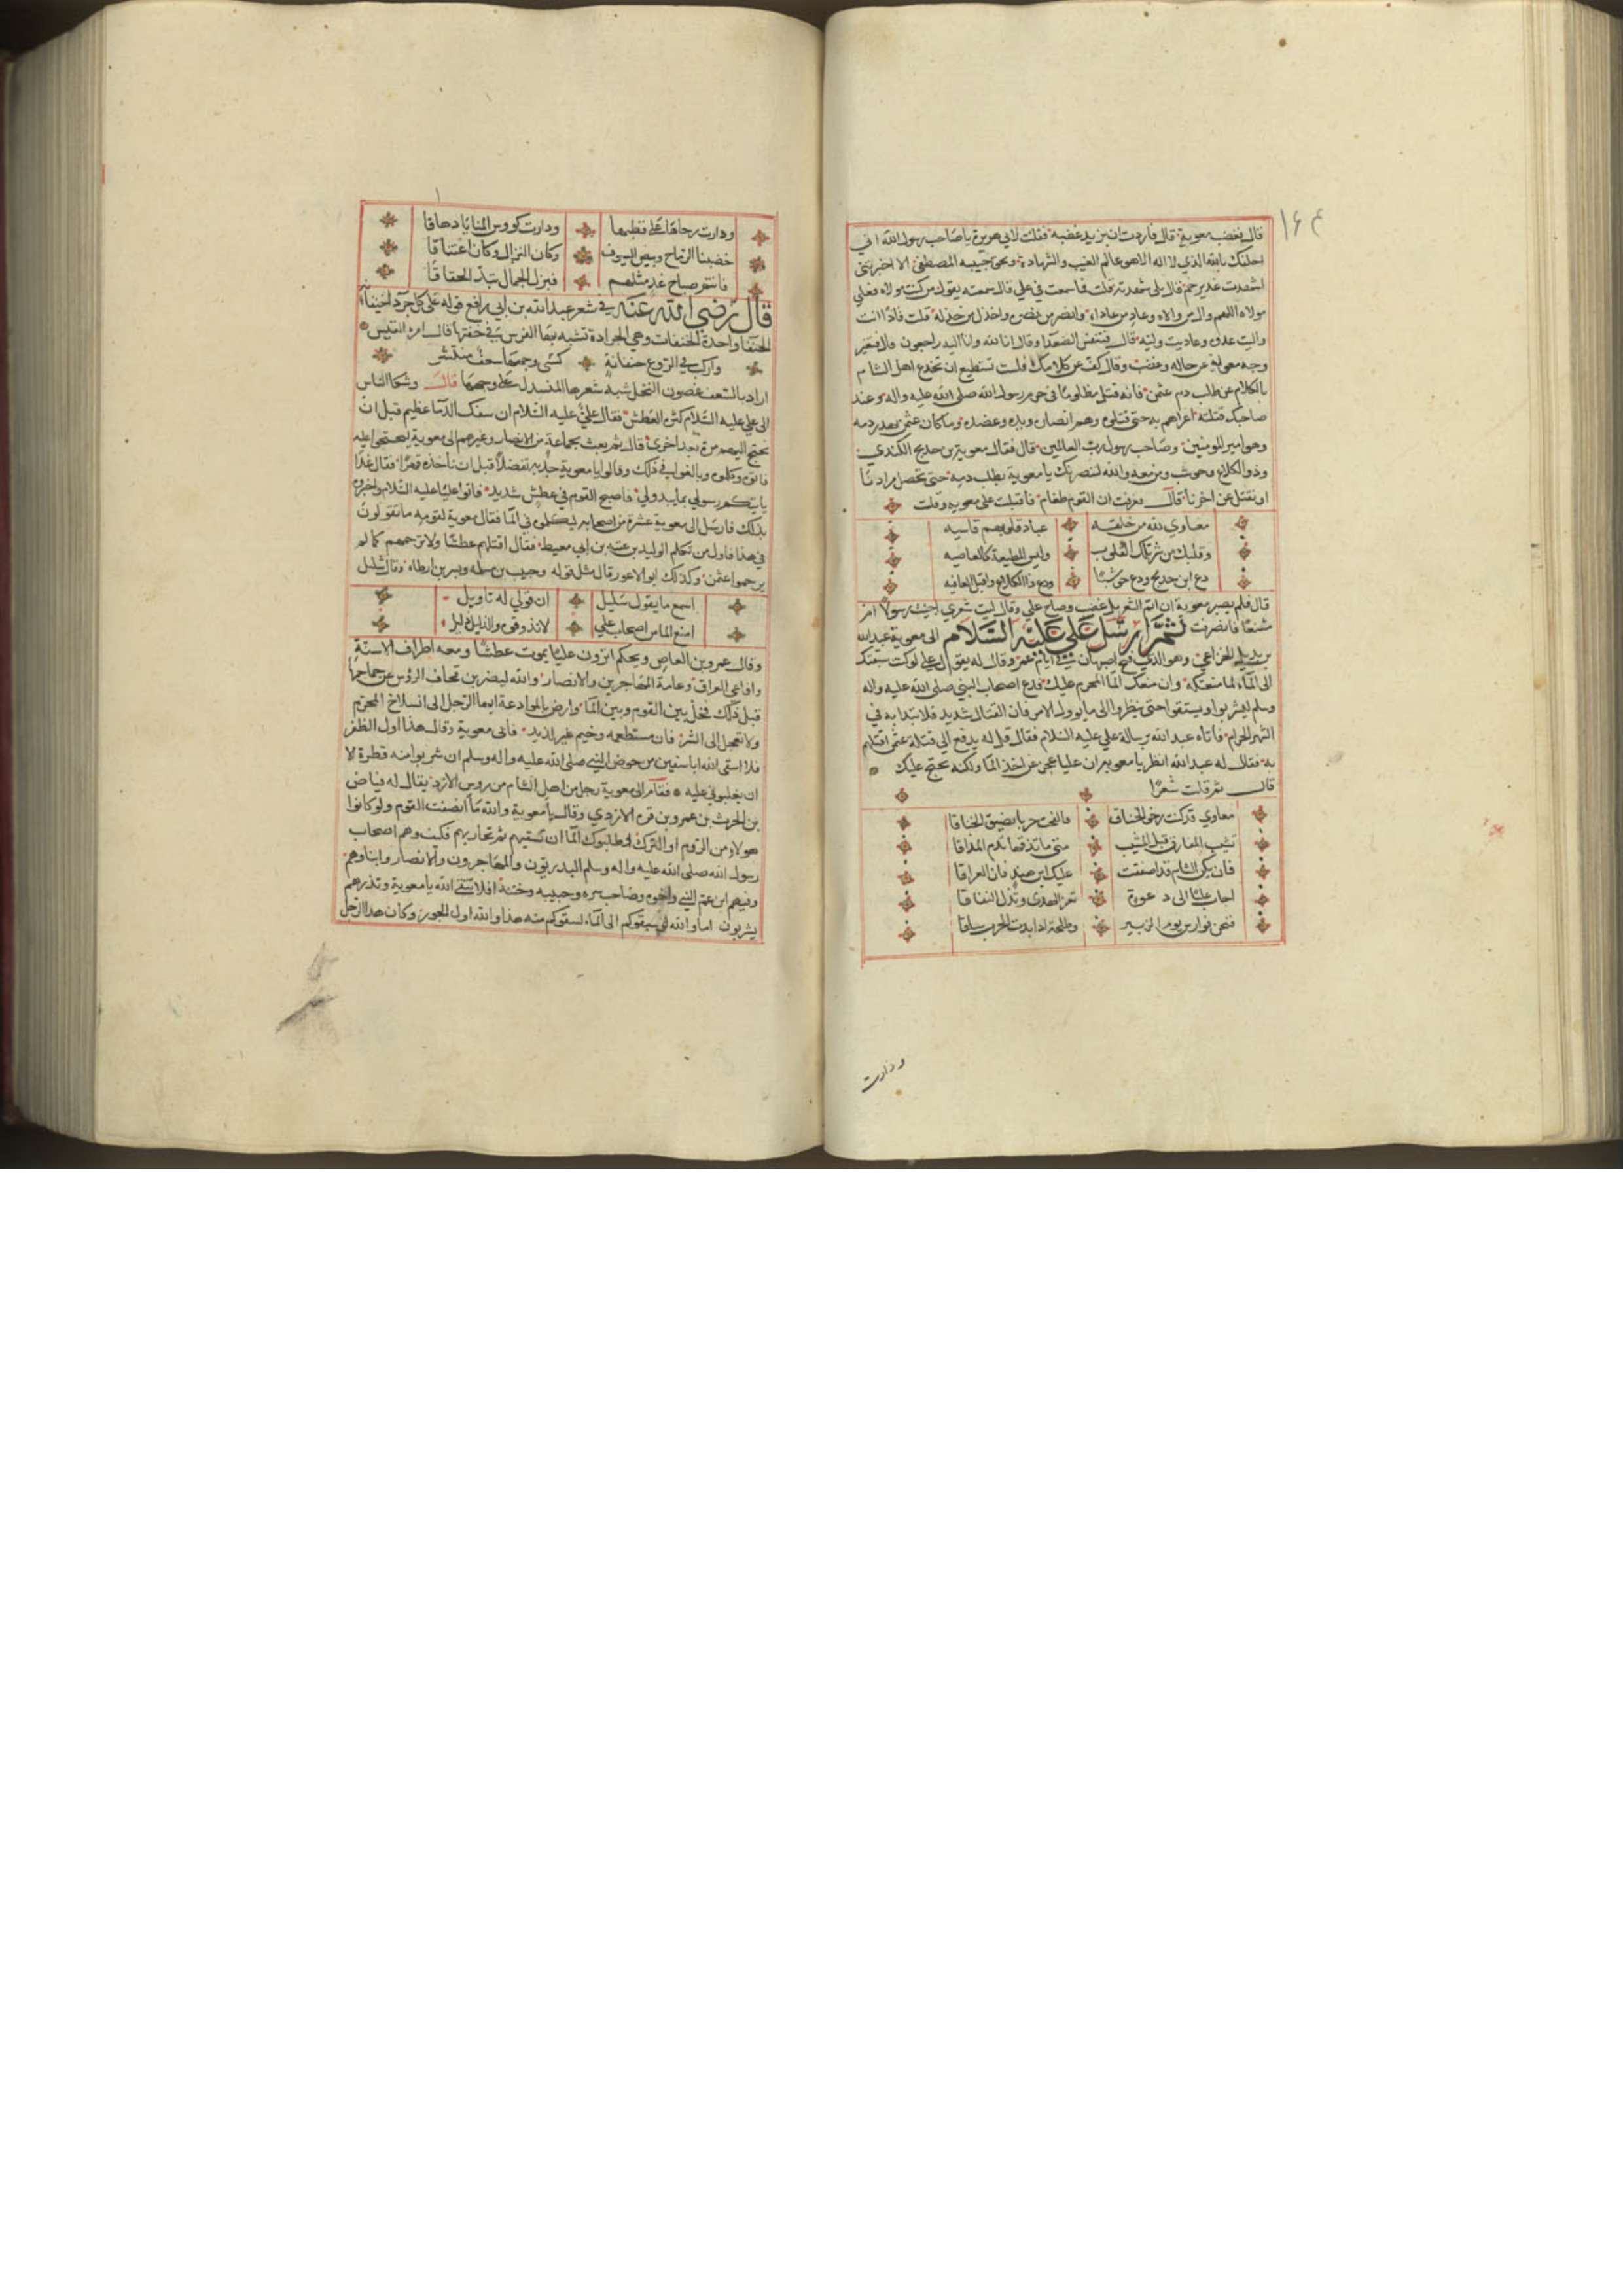 ١٦٤
قال فغضب معوية قال فاردت ان يزيد غضبه فقلت لابي هريرة يا صاحب رسول الله اني
احلفك بالله الذي لا اله الا هو عالم الغيب والشهادة وبحق حبيبه المصطفى الا اخبرتني
اشهدت غدير خم قال بلى شهدته قلت فما سمعت في علي قال سمعته يقول من كنت مولاه فعلي
مولاه اللهم وال من والاه وعاد من عاداه وانصر من نصره واخذل من خذله قلت فاذا انت
واليت عدوه وعاديت وليه قال فتنفس الصعدا وقال انا لله وانا اليه راجعون قال فتغير
وجه معوية عن حاله وغضب وقال كف عن كلامك فلست تستطيع ان تخدع اهل الشام
بالكلام عن طلب دم عثمن فانه قتل مظلوما في حرم رسول الله صلى الله عليه واله وعند
صاحبك قتلته اغراهم به حتى قتلوه وهم انصاره ويده وعضده وما كان عثمن يهدر دمه
وهو امير المومنين وصاحب رسول رب العالمين قال فقال معوية بن حديج الكندي
وذو الكلاع وحوشب ومن معه والله لننصرنك يا معوية بطلب دمه حتى تحصل مرادنا
او نقتل عن اخرنا قال فعرفت ان القوم طغام فاقبلت على معويه وقلت
معاوي لله من خلقه عباد قلوبهم قاسيه
وقلبك من شر تلك القلوب وليس المطيعة كالعاصيه
دع ابن حديج ودع حوشبا ودع ذا الكلاع واقبل العافيه
قال فلم يصبر معوية ان اتم الشعر بل غضب وصاح علي وقال ليت شعري اجئت رسولا ام
مشنعا فانصرفت ثم ارسل علي عليه السلام الى معوية عبد الله
بن بديل الخزاعي وهو الذي فتح اصبهان في ايام عمر وقال له يقول لك علي لو كنت سبقتك
الى الماء لما منعتكه وان منعك الما المحرم عليك فدع اصحاب النبي صلى الله عليه واله
وسلم ليشربوا ويستقوا حتى ينظروا الى ما يوول الامر فان القتال شديد فلا تبدا به في
الشهر الحرام فاتاه عبد الله برسالة علي عليه السلام فقال قل له يدفع الي قتلة عثمن اقتلهم
به فقال له عبد الله انظر يا معوية ان عليا عجز عن اخذ الما ولكنه يحتج عليك
قال ثم قلت شعرا
معاوي قد كنت رخو الخناق فالقحت حربا بضيق الخناقا
تشيب المفارق قبل المشيب متى ما تذقها تذم المذاقا
فان يكن الشام قد اصفقت عليك ابن هند فان العراقا
اجاب عليا الى دعوة تعز الهدى وتذل النفاقا
فنحن فوارس يوم الزبير وطلحة اذ ابدت الحرب ساقا
ودارت
ودارت رحاها على قطبها ودارت كووس المنايا دهاقا
خضبنا الرماح وبيض السيوف وكان النزال وكان اعتناقا
فانتم صباح غد مثلهم فبزل الجمال تبذ الحقاقا
قال رضي الله عنه في شعر عبد الله بن ابي رافع قوله على كل جردا خيفاء
الخيفا واحدة الخيفات وهي الجرادة تشبه بها الفرس في خفتها قال امرؤ القيس
واركب في الروع خيفانة كسى وجهها سعف منتشر
اراد بالسعف غصون النخل شبه شعرها المنسدل على وجهها قال وشكا الناس
الى علي عليه السلام كثرة العطش فقال علي عليه السلام ان سفك الدما عظيم قبل ان
نحتج اليهم مرة بعد اخرى قال ثم بعث بجماعة من الانصار وغيرهم الى معوية ليحتجوا عليه
فاتوه وكلموه وبالغوا في ذلك وقالوا يا معوية جد به تفضلا قبل ان ناخذه قهرا فقال غدا
ياتيكم رسولي بما يبدو لي فاصبح القوم في عطش شديد فاتوا عليا عليه السلام واخبروه
بذلك فارسل الى معوية عشرة من اصحابه ليكلموه في الما فقال معوية لقومه ما تقولون
في هذا فاول من تكلم الوليد بن عتبه بن ابي معيط فقال اقتلهم عطشا ولا ترحمهم كما لم
يرحموا عثمن وكذلك ابو الاعور قال مثل قوله وحبيب بن مسلمه وبسر بن ارطاه وقال شليل
اسمع ما يقول شليل ان قولي له تاويل
امنع الما من اصحاب علي لا تذوقوه والذليل ذليل
وقال عمرو بن العاص ويحكم اترون عليا يموت عطشا ومعه اطراف الاسنة
وافاعي العراق وعامة المهاجرين والانصار والله ليضربن قحاف الرؤس عن جماجمها
قبل ذلك فخل بين القوم وبين الما وارض بالموادعة ايها الرجل الى انسلاخ المحرم
ولا تعجل الى الشر فان مستطعمه وخيم غير لذيذ فابى معوية وقال هذا اول الظفر
فلا سقى الله ابا سفين من حوض النبي صلى الله عليه واله وسلم ان شربوا منه قطرة لا
ان يغلبوني عليه فقام الى معوية رجل من اهل الشام من روس الازد يقال له فياض
بن الحرث بن عمرو بن قره الازدي وقال يا معوية والله ما انصفت القوم ولو كانوا
هولاء من الروم او الترك وطلبوك الما ان تسقيهم ثم تحاربهم فكيف وهم اصحاب
رسول الله صلى الله عليه واله وسلم البدريون والمهاجرون والانصار وابناوهم
وفيهم ابن عم النبي واخوه وصاحب سره وحبيبه وختنه افلا تتقي الله يا معوية وتذرهم
يشربون اما والله لو سبقوكم الى الماء لسقوكم منه هذا والله اول الجور وكان هذا الرجل